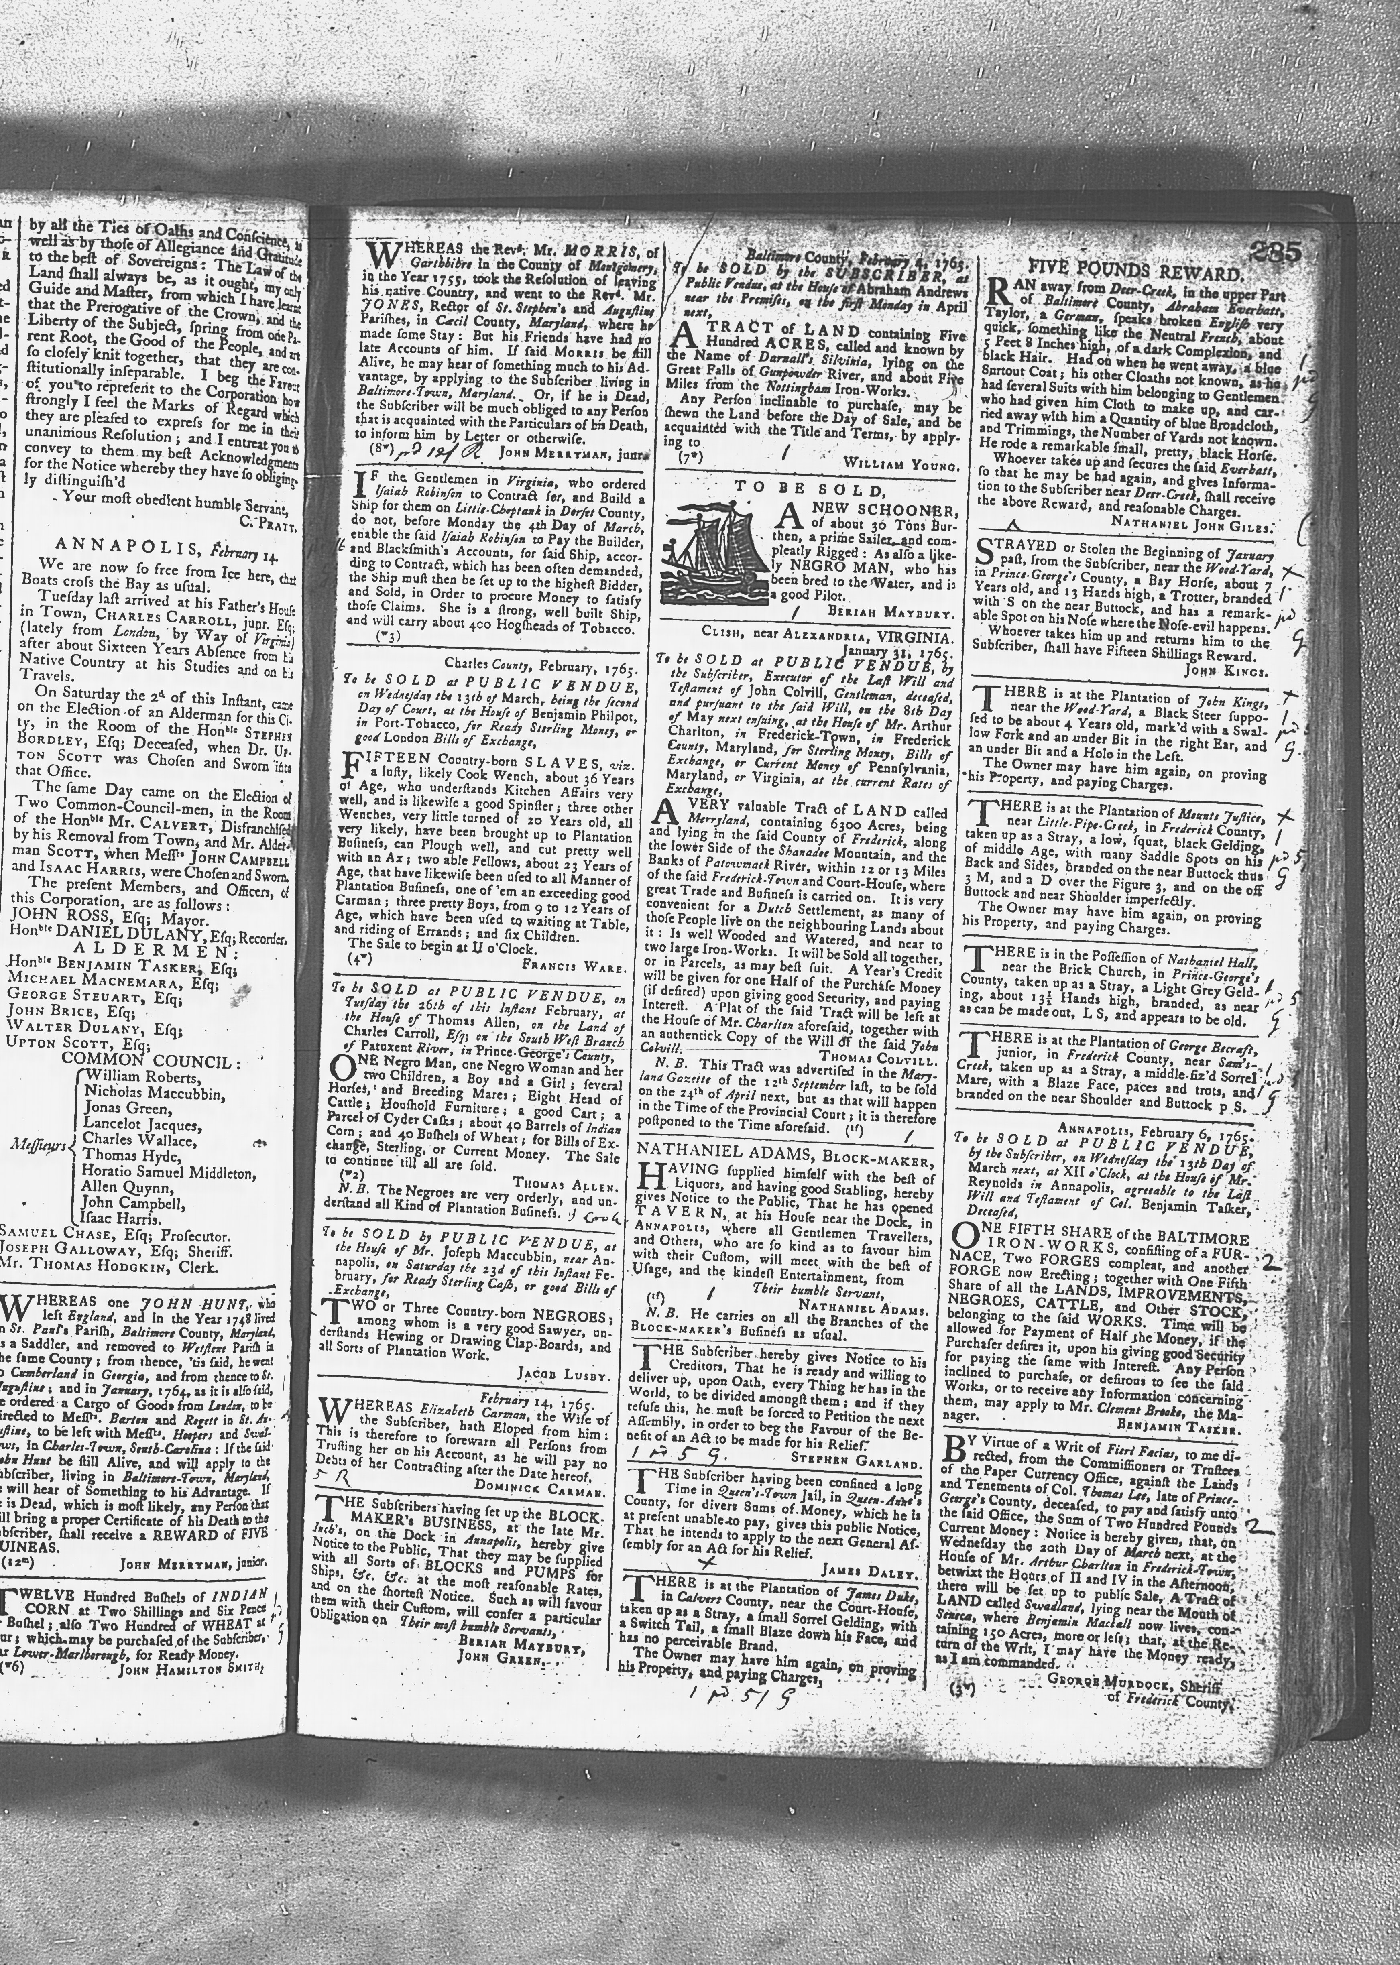 by all the Ties of Oaths and Conscience, as
well as by those of Allegiance and Gratitude
to the best of Sovereigns: The Law of the
Land shall always be, as it ought, my only
Guide and Master, from which I have learnt
that the Prerogative of the Crown, and the
Liberty of the Subject, spring from one Pa-
rent Root, the Good of the People, and are
so closely knit together, that they are con-
stitutionally inseparable. I beg the Favor
of you to represent to the Corporation how
strongly I feel the Marks of Regard which
they are pleased to express for me in their
unanimous Resolution; and I entreat you to
convey to them my best Acknowledgments
for the Notice whereby they have so obliging-
ly distinguish'd
Your most obedient humble Servant,
C. PRATT.
ANNAPOLIS, February 14.
We are now so free from Ice here, that
Boats cross the Bay as usual.
Tuesday last arrived at his Father's House
in Town, CHARLES CARROLL, junr. Esq;
(lately from London, by Way of Virginia)
after about Sixteen Years Absence from his
Native Country at his Studies and on his
Travels.
On Saturday the 2d of this Instant, came
on the Election of an Alderman for this Ci-
ty, in the Room of the Honble STEPHEN
BORDLEY, Esq; Deceased, when Dr. UP-
TON SCOTT was Chosen and Sworn into
that Office.
The same Day came on the Election of
Two Common-Council-men, in the Room
of the Honble Mr. CALVERT, Disfranchised
by his Removal from Town, and Mr. Alder-
man SCOTT, when Messrs JOHN CAMPBELL
and ISAAC HARRIS, were Chosen and Sworn.
The present Members, and Officers, of
this Corporation, are as follows:
JOHN ROSS, Esq; Mayor.
Honble DANIEL DULANY, Esq; Recorder.
ALDERMEN:
Honble BENJAMIN TASKER, Esq;
MICHAEL MACNEMARA, Esq;
GEORGE STEUART, Esq;
JOHN BRICE, Esq;
WALTER DULANY, Esq;
UPTON SCOTT, Esq;
COMMON COUNCIL:
William Roberts,
Nicholas Maccubbin,
Jonas Green,
Lancelot Jacques,
Messieurs Charles Wallace,
Thomas Hyde,
Horatio Samuel Middleton,
Allen Quynn,
John Campbell,
Isaac Harris.
SAMUEL CHASE, Esq; Prosecutor.
JOSEPH GALLOWAY, Esq; Sheriff.
Mr. THOMAS HODGKIN, Clerk.
WHEREAS one JOHN HUNT, who
left England, and in the Year 1748 lived
in St. Paul's Parish, Baltimore County, Maryland,
as a Saddler, and removed to Parish in
the same County; from thence, 'tis said, he went
to Cumberland in Georgia, and from thence to St.
Augustine; and in January, 1764, as it is also said,
he ordered a Cargo of Goods from London, to be
directed to Messrs. Barton and Rogett in St. Au-
gustine, to be left with Messrs. Hoopers and
in Charles-Town, South-Carolina: If the said
John Hunt be still Alive, and will apply to the
Subscriber, living in Baltimore-Town, Maryland,
will hear of Something to his Advantage. If
he is Dead, which is most likely, any Person that
will bring a proper Certificate of his Death to the
Subscriber, shall receive a REWARD of FIVE
GUINEAS.
(12m) JOHN MERRYMAN, junior.
TWELVE Hundred Bushels of INDIAN
CORN at Two Shillings and Six Pence
Bushel; also Two Hundred of WHEAT at
which may be purchased of the Subscriber,
Lower-Marlborough, for Ready Money.
(*6) JOHN HAMILTON SMITH,
WHEREAS the Revd. Mr. MORRIS, of
Garthbibre in the County of Montgomery,
in the Year 1755, took the Resolution of leaving
his native Country, and went to the Revd. Mr.
JONES, Rector of St. Stephen's and Augustine
Parishes, in Cæcil County, Maryland, where he
made some Stay: But his Friends have had no
late Accounts of him. If said MORRIS be still
Alive, he may hear of something much to his Ad-
vantage, by applying to the Subscriber living in
Baltimore-Town, Maryland. Or, if he is Dead,
the Subscriber will be much obliged to any Person
that is acquainted with the Particulars of his Death,
to inform him by Letter or otherwise.
(8w) JOHN MERRYMAN, junr.
IF the Gentlemen in Virginia, who ordered
Isaiah Robinson to Contract for, and Build a
Ship for them on Little-Choptank in Dorset County,
do not, before Monday the 4th Day of March,
enable the said Isaiah Robinson to Pay the Builder,
and Blacksmith's Accounts, for said Ship, accor-
ding to Contract, which has been often demanded,
the Ship must then be set up to the highest Bidder,
and Sold, in Order to procure Money to satisfy
those Claims. She is a strong, well built Ship,
and will carry about 400 Hogsheads of Tobacco.
(*3)
Charles County, February, 1765.
To be SOLD at PUBLIC VENDUE,
on Wednesday the 13th of March, being the second
Day of Court, at the House of Benjamin Philpot,
in Port-Tobacco, for Ready Sterling Money, or
good London Bills of Exchange,
FIFTEEN Country-born SLAVES, viz.
a lusty, likely Cook Wench, about 36 Years
of Age, who understands Kitchen Affairs very
well, and is likewise a good Spinster; three other
Wenches, very little turned of 20 Years old, all
very likely, have been brought up to Plantation
Business, can Plough well, and cut pretty well
with an Ax; two able Fellows, about 23 Years of
Age, that have likewise been used to all Manner of
Plantation Business, one of 'em an exceeding good
Carman; three pretty Boys, from 9 to 12 Years of
Age, which have been used to waiting at Table,
and riding of Errands; and six Children.
The Sale to begin at II o'Clock.
(4w) FRANCIS WARE.
To be SOLD at PUBLIC VENDUE, on
Tuesday the 26th of this Instant February, at
the House of Thomas Allen, on the Land of
Charles Carroll, Esq; on the South West Branch
of Patuxent River, in Prince-George's County,
ONE Negro Man, one Negro Woman and her
two Children, a Boy and a Girl; several
Horses, and Breeding Mares; Eight Head of
Cattle; Houshold Furniture; a good Cart; a
Parcel of Cyder Casks; about 40 Barrels of Indian
Corn; and 40 Bushels of Wheat; for Bills of Ex-
change, Sterling, or Current Money. The Sale
to continue till all are sold.
(*2) THOMAS ALLEN.
N. B. The Negroes are very orderly, and un-
derstand all Kind of Plantation Business.
To be SOLD by PUBLIC VENDUE, at
the House of Mr. Joseph Maccubbin, near An-
napolis, on Saturday the 23d of this Instant Fe-
bruary, for Ready Sterling Cash, or good Bills of
Exchange,
TWO or Three Country-born NEGROES;
among whom is a very good Sawyer, un-
derstands Hewing or Drawing Clap-Boards, and
all Sorts of Plantation Work.
JACOB LUSBY.
February 14, 1765.
WHEREAS Elizabeth Carman, the Wife of
the Subscriber, hath Eloped from him:
This is therefore to forewarn all Persons from
Trusting her on his Account, as he will pay no
Debts of her Contracting after the Date hereof.
DOMINICK CARMAN.
THE Subscribers having set up the BLOCK-
MAKER'S BUSINESS, at the late Mr.
Inch's, on the Dock in Annapolis, hereby give
Notice to the Public, That they may be supplied
with all Sorts of BLOCKS and PUMPS for
Ships, &c. &c. at the most reasonable Rates,
and on the shortest Notice. Such as will favour
them with their Custom, will confer a particular
Obligation on Their most humble Servants,
BERIAH MAYBURY,
JOHN GREEN.
Baltimore County, February 4, 1765.
To be SOLD by the SUBSCRIBER, at
Public Vendue, at the House of Abraham Andrews
near the Premises, on the first Monday in April
next,
A TRACT of LAND containing Five
Hundred ACRES, called and known by
the Name of Darnall's Silvinia, lying on the
Great Falls of Gunpowder River, and about Five
Miles from the Nottingham Iron-Works.
Any Person inclinable to purchase, may be
shewn the Land before the Day of Sale, and be
acquainted with the Title and Terms, by apply-
ing to
(7w) WILLIAM YOUNG.
TO BE SOLD,
A NEW SCHOONER,
of about 30 Tons Bur-
then, a prime Sailer, and com-
pleatly Rigged: As also a like-
ly NEGRO MAN, who has
been bred to the Water, and is
a good Pilot.
BERIAH MAYBURY.
CLISH, near ALEXANDRIA, VIRGINIA.
January 31, 1765.
To be SOLD at PUBLIC VENDUE, by
the Subscriber, Executor of the Last Will and
Testament of John Colvill, Gentleman, deceased,
and pursuant to the said Will, on the 8th Day
of May next ensuing, at the House of Mr. Arthur
Charlton, in Frederick-Town, in Frederick
County, Maryland, for Sterling Money, Bills of
Exchange, or Current Money of Pennsylvania,
Maryland, or Virginia, at the current Rates of
Exchange,
A VERY valuable Tract of LAND called
Merryland, containing 6300 Acres, being
and lying in the said County of Frederick, along
the lower Side of the Shanadee Mountain, and the
Banks of Patowmack River, within 12 or 13 Miles
of the said Frederick-Town and Court-House, where
great Trade and Business is carried on. It is very
convenient for a Dutch Settlement, as many of
those People live on the neighbouring Lands about
it: Is well Wooded and Watered, and near to
two large Iron-Works. It will be Sold all together,
or in Parcels, as may best suit. A Year's Credit
will be given for one Half of the Purchase Money
(if desired) upon giving good Security, and paying
Interest. A Plat of the said Tract will be left at
the House of Mr. Charlton aforesaid, together with
an authentick Copy of the Will of the said John
Colvill. THOMAS COLVILL.
N. B. This Tract was advertised in the Mary-
land Gazette of the 12th September last, to be sold
on the 24th of April next, but as that will happen
in the Time of the Provincial Court; it is therefore
postponed to the Time aforesaid. (tf)
NATHANIEL ADAMS, BLOCK-MAKER,
HAVING supplied himself with the best of
Liquors, and having good Stabling, hereby
gives Notice to the Public, That he has opened
TAVERN, at his House near the Dock, in
ANNAPOLIS, where all Gentlemen Travellers,
and Others, who are so kind as to favour him
with their Custom, will meet with the best of
Usage, and the kindest Entertainment, from
Their humble Servant,
(tf) NATHANIEL ADAMS.
N. B. He carries on all the Branches of the
BLOCK-MAKER's Business as usual.
THE Subscriber hereby gives Notice to his
Creditors, That he is ready and willing to
deliver up, upon Oath, every Thing he has in the
World, to be divided amongst them; and if they
refuse this, he must be forced to Petition the next
Assembly, in order to beg the Favour of the Be-
nefit of an Act to be made for his Relief.
STEPHEN GARLAND.
THE Subscriber having been confined a long
Time in Queen's-Town Jail, in Queen-Anne's
County, for divers Sums of Money, which he is
at present unable to pay, gives this public Notice,
That he intends to apply to the next General As-
sembly for an Act for his Relief.
JAMES DALEY.
THERE is at the Plantation of James Duke,
in Calvert County, near the Court-House,
taken up as a Stray, a small Sorrel Gelding, with
a Switch Tail, a small Blaze down his Face, and
has no perceivable Brand.
The Owner may have him again, on proving
his Property, and paying Charges,
1 pd 5/ G
285
FIVE POUNDS REWARD.
RAN away from Deer-Creek, in the upper Part
of Baltimore County, Abraham Everbatt,
Taylor, a German, speaks broken English very
quick, something like the Neutral French, about
5 Feet 8 Inches high, of a dark Complexion, and
black Hair. Had on when he went away, a blue
Surtout Coat; his other Cloaths not known, as he
had several Suits with him belonging to Gentlemen
who had given him Cloth to make up, and car-
ried away with him a Quantity of blue Broadcloth,
and Trimmings, the Number of Yards not known.
He rode a remarkable small, pretty, black Horse.
Whoever takes up and secures the said Everbatt,
so that he may be had again, and gives Informa-
tion to the Subscriber near Deer-Creek, shall receive
the above Reward, and reasonable Charges.
NATHANIEL JOHN GILES.
STRAYED or Stolen the Beginning of January
past, from the Subscriber, near the Wood-Yard,
in Prince-George's County, a Bay Horse, about 7
Years old, and 13 Hands high, a Trotter, branded
with S on the near Buttock, and has a remark-
able Spot on his Nose where the Nose-evil happens.
Whoever takes him up and returns him to the
Subscriber, shall have Fifteen Shillings Reward.
JOHN KINGS.
THERE is at the Plantation of John Kings,
near the Wood-Yard, a Black Steer suppo-
sed to be about 4 Years old, mark'd with a Swal-
low Fork and an under Bit in the right Ear, and
an under Bit and a Hole in the Left.
The Owner may have him again, on proving
his Property, and paying Charges.
THERE is at the Plantation of Mounts Justice,
near Little-Pipe-Creek, in Frederick County,
taken up as a Stray, a low, squat, black Gelding,
of middle Age, with many Saddle Spots on his
Back and Sides, branded on the near Buttock thus
3 M, and a D over the Figure 3, and on the off
Buttock and near Shoulder imperfectly.
The Owner may have him again, on proving
his Property, and paying Charges.
THERE is in the Possession of Nathaniel Hall,
near the Brick Church, in Prince-George's
County, taken up as a Stray, a Light Grey Geld-
ing, about 13½ Hands high, branded, as near
as can be made out, L S, and appears to be old.
THERE is at the Plantation of George Becraft,
junior, in Frederick County, near Sam's-
Creek, taken up as a Stray, a middle-siz'd Sorrel
Mare, with a Blaze Face, paces and trots, and
branded on the near Shoulder and Buttock P S.
ANNAPOLIS, February 6, 1765.
To be SOLD at PUBLIC VENDUE,
by the Subscriber, on Wednesday the 13th Day of
March next, at XII o'Clock, at the House of Mr.
Reynolds in Annapolis, agreeable to the Last
Will and Testament of Col. Benjamin Tasker,
Deceased,
ONE FIFTH SHARE of the BALTIMORE
IRON-WORKS, consisting of a FUR-
NACE, Two FORGES compleat, and another
FORGE now Erecting; together with One Fifth
Share of all the LANDS, IMPROVEMENTS,
NEGROES, CATTLE, and Other STOCK,
belonging to the said WORKS. Time will be
allowed for Payment of Half the Money, if the
Purchaser desires it, upon his giving good Security
for paying the same with Interest. Any Person
inclined to purchase, or desirous to see the said
Works, or to receive any Information concerning
them, may apply to Mr. Clement Brooke, the Ma-
nager. BENJAMIN TASKER.
BY Virtue of a Writ of Fieri Facias, to me di-
rected, from the Commissioners or Trustees
of the Paper Currency Office, against the Lands
and Tenements of Col. Thomas Lee, late of Prince-
George's County, deceased, to pay and satisfy unto
the said Office, the Sum of Two Hundred Pounds
Current Money: Notice is hereby given, that, on
Wednesday the 20th Day of March next, at the
House of Mr. Arthur Charlton in Frederick-Town,
betwixt the Hours of II and IV in the Afternoon,
there will be set up to public Sale, A Tract of
LAND called Swadland, lying near the Mouth of
Seneca, where Benjamin Mackall now lives, con-
taining 150 Acres, more or less; that, at the Re-
turn of the Writ, I may have the Money ready,
as I am commanded.
(3w) GEORGE MURDOCK, Sheriff
of Frederick County.